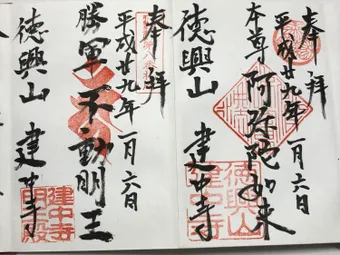 奉拝
平成廿九年一月六日
本尊 阿弥陀如来
徳興山 建中寺
徳興山
建中寺
奉拝
平成廿九年一月六日
勝軍不動明王
徳興山 建中寺
建中寺